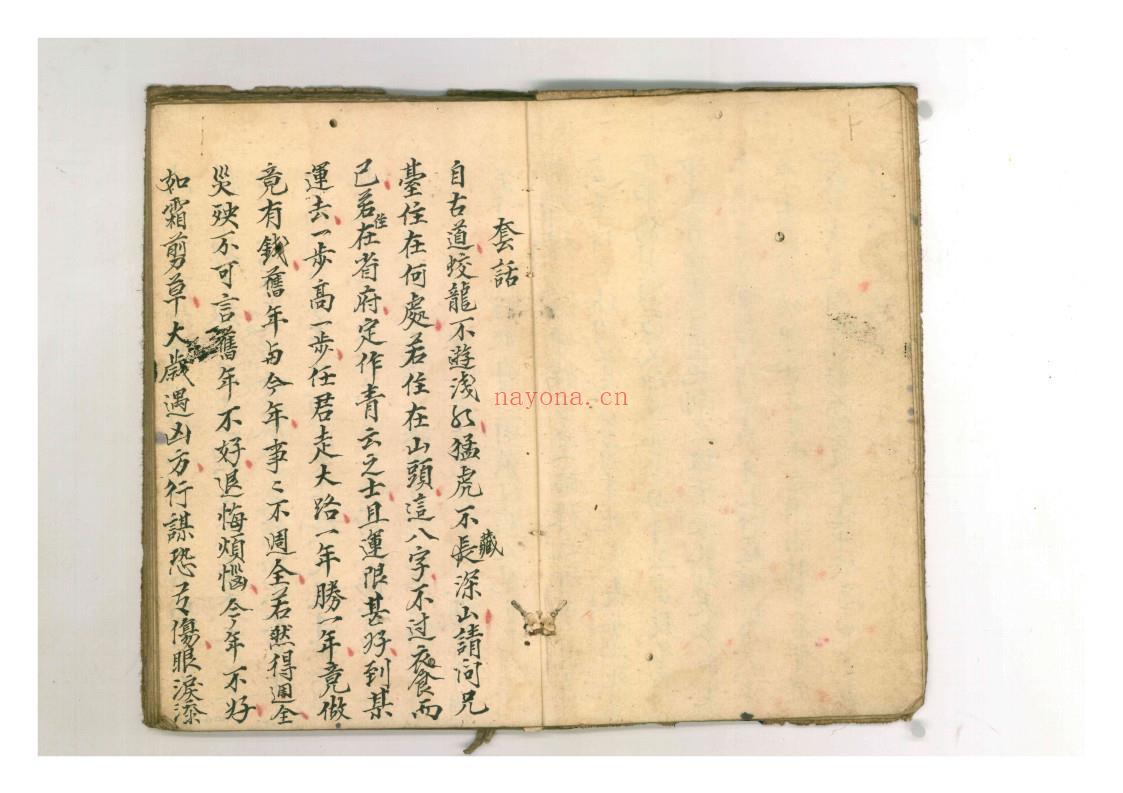 套話
自古道蛟龍不遊淺水猛虎不長藏深山請问兄
臺住在何處若住在山頭這八字不过衣食而
已若住在省府定作青云之士且運限甚好到某
運去一步高一步任君走大路一年勝一年竟做
竟有錢舊年与今年事〻不週全若然得週全
災殃不可言舊年不好退悔煩惱今年不好
如霜剪草大歲遇凶方行謀恐有傷眼淚添
nayona.cn